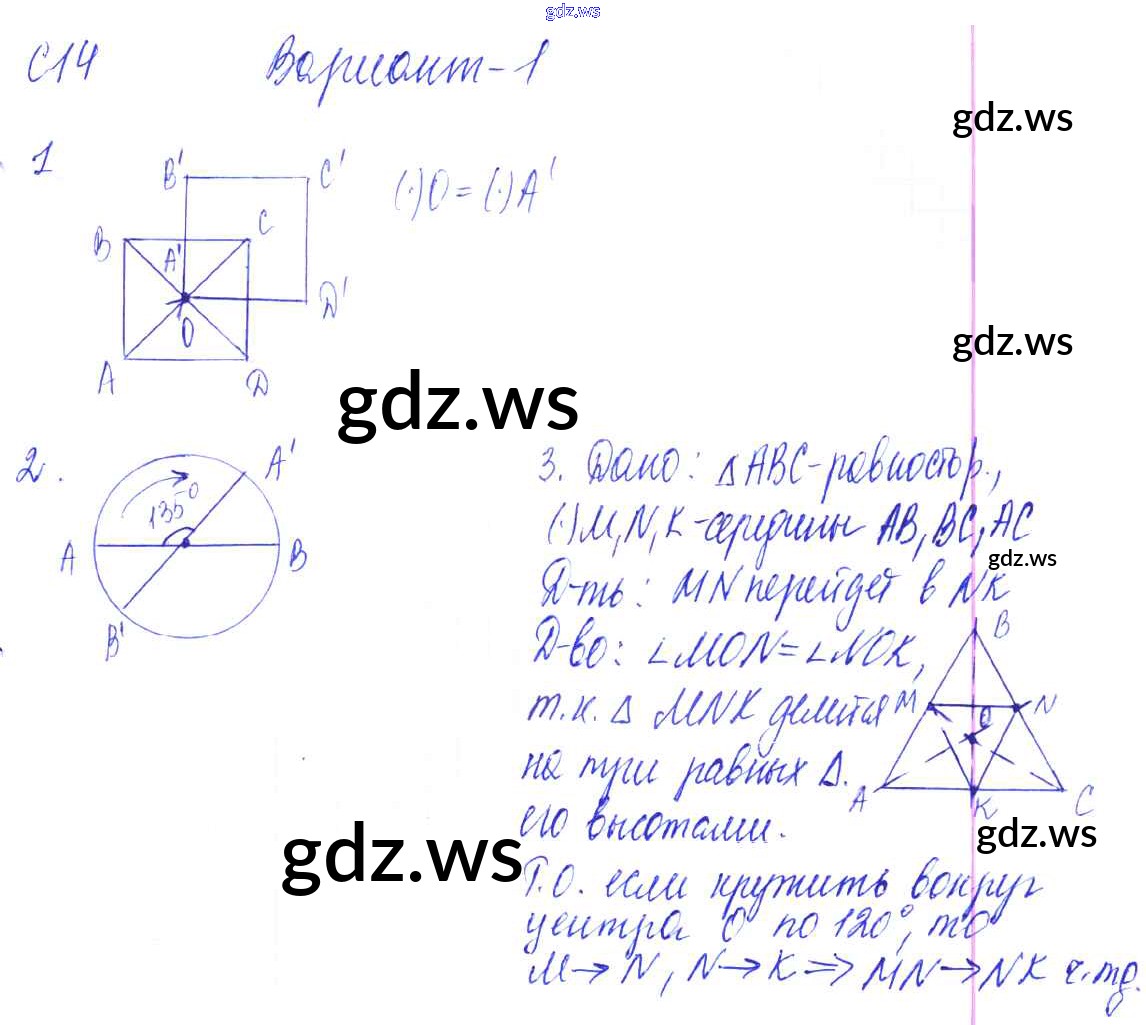 gdz.ws
С14 Вариант-1
gdz.ws
1
B' C' (·)O = (·)A'
B A' C
O D'
A D
gdz.ws
gdz.ws
2.
A'
135°
A B
B'
3. Дано: △ABC-равностор.,
(·)M,N,K-середины AB,BC,AC
gdz.ws
Д-ть: MN перейдет в NK
B
Д-во: ∠MON=∠NOK,
т.к. △ MNK делится
M N
O
на три равных △.
A K C
его высотами.
gdz.ws
gdz.ws
Т.О. если кружить вокруг
центра O по 120°, то
M→N, N→K ⇒ MN→NK ч.тд.